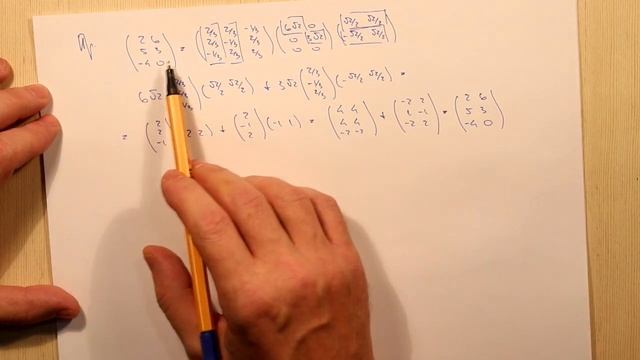 Пр. ( 2 6 ; 5 3 ; -4 0 ) = ( 2/3 2/3 -1/3 ; 2/3 -1/3 2/3 ; -1/3 2/3 2/3 ) ( 6√2 0 ; 0 3√2 ; 0 0 ) ( √2/2 √2/2 ; -√2/2 √2/2 )
6√2 /3 ) ( √2/2 √2/2 ) + 3√2 ( 2/3 ; -1/3 ; 2/3 ) ( -√2/2 √2/2 ) =
= ( 2 ; 2 ; -1 ) 2 ) + ( 2 ; -1 ; 2 ) ( -1 1 ) = ( 4 4 ; 4 4 ; -2 -2 ) + ( -2 2 ; 1 -1 ; -2 2 ) = ( 2 6 ; 5 3 ; -4 0 )